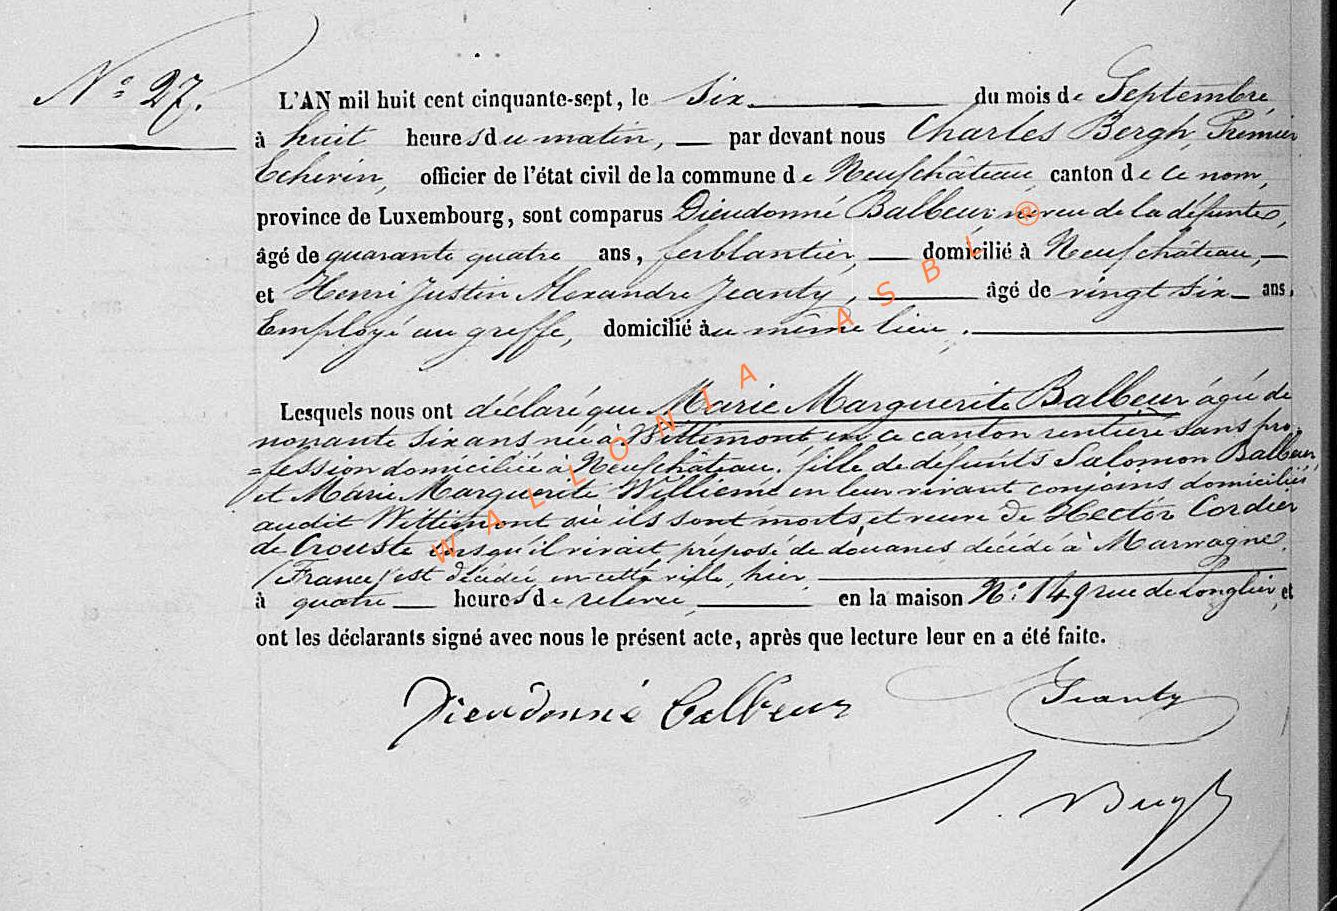 N° 27.
L'AN mil huit cent cinquante-sept, le six du mois de Septembre
à huit heures du matin, par devant nous Charles Bergh, Premier
Echevin, officier de l'état civil de la commune de Neufchâteau canton de ce nom,
province de Luxembourg, sont comparus Dieudonné Balbeur neveu de la défunte,
âgé de quarante quatre ans, ferblantier, domicilié à Neufchâteau,
et Henri Justin Alexandre Jeanty, âgé de vingt six ans,
Employé au greffe, domicilié au même lieu.
Lesquels nous ont déclaré que Marie Marguerite Balbeur âgée de
nonante six ans née à Wittimont en ce canton rentière sans pro-
=fession domiciliée à Neufchâteau, fille de défunts Salomon Balbeur
et Marie Marguerite Willieme en leur vivant conjoins domiciliés
audit Wittimont où ils sont morts, et veuve de Hector Cordier
de Crouste lorsqu'il vivait préposé de douanes décédé à
(France) est décédée en cette ville, hier,
à quatre heures de relevée, en la maison N° 149 rue de Longlier, et
ont les déclarants signé avec nous le présent acte, après que lecture leur en a été faite.
Dieudonné Balbeur Jeanty
Bergh
WALLONIA ASBL ®